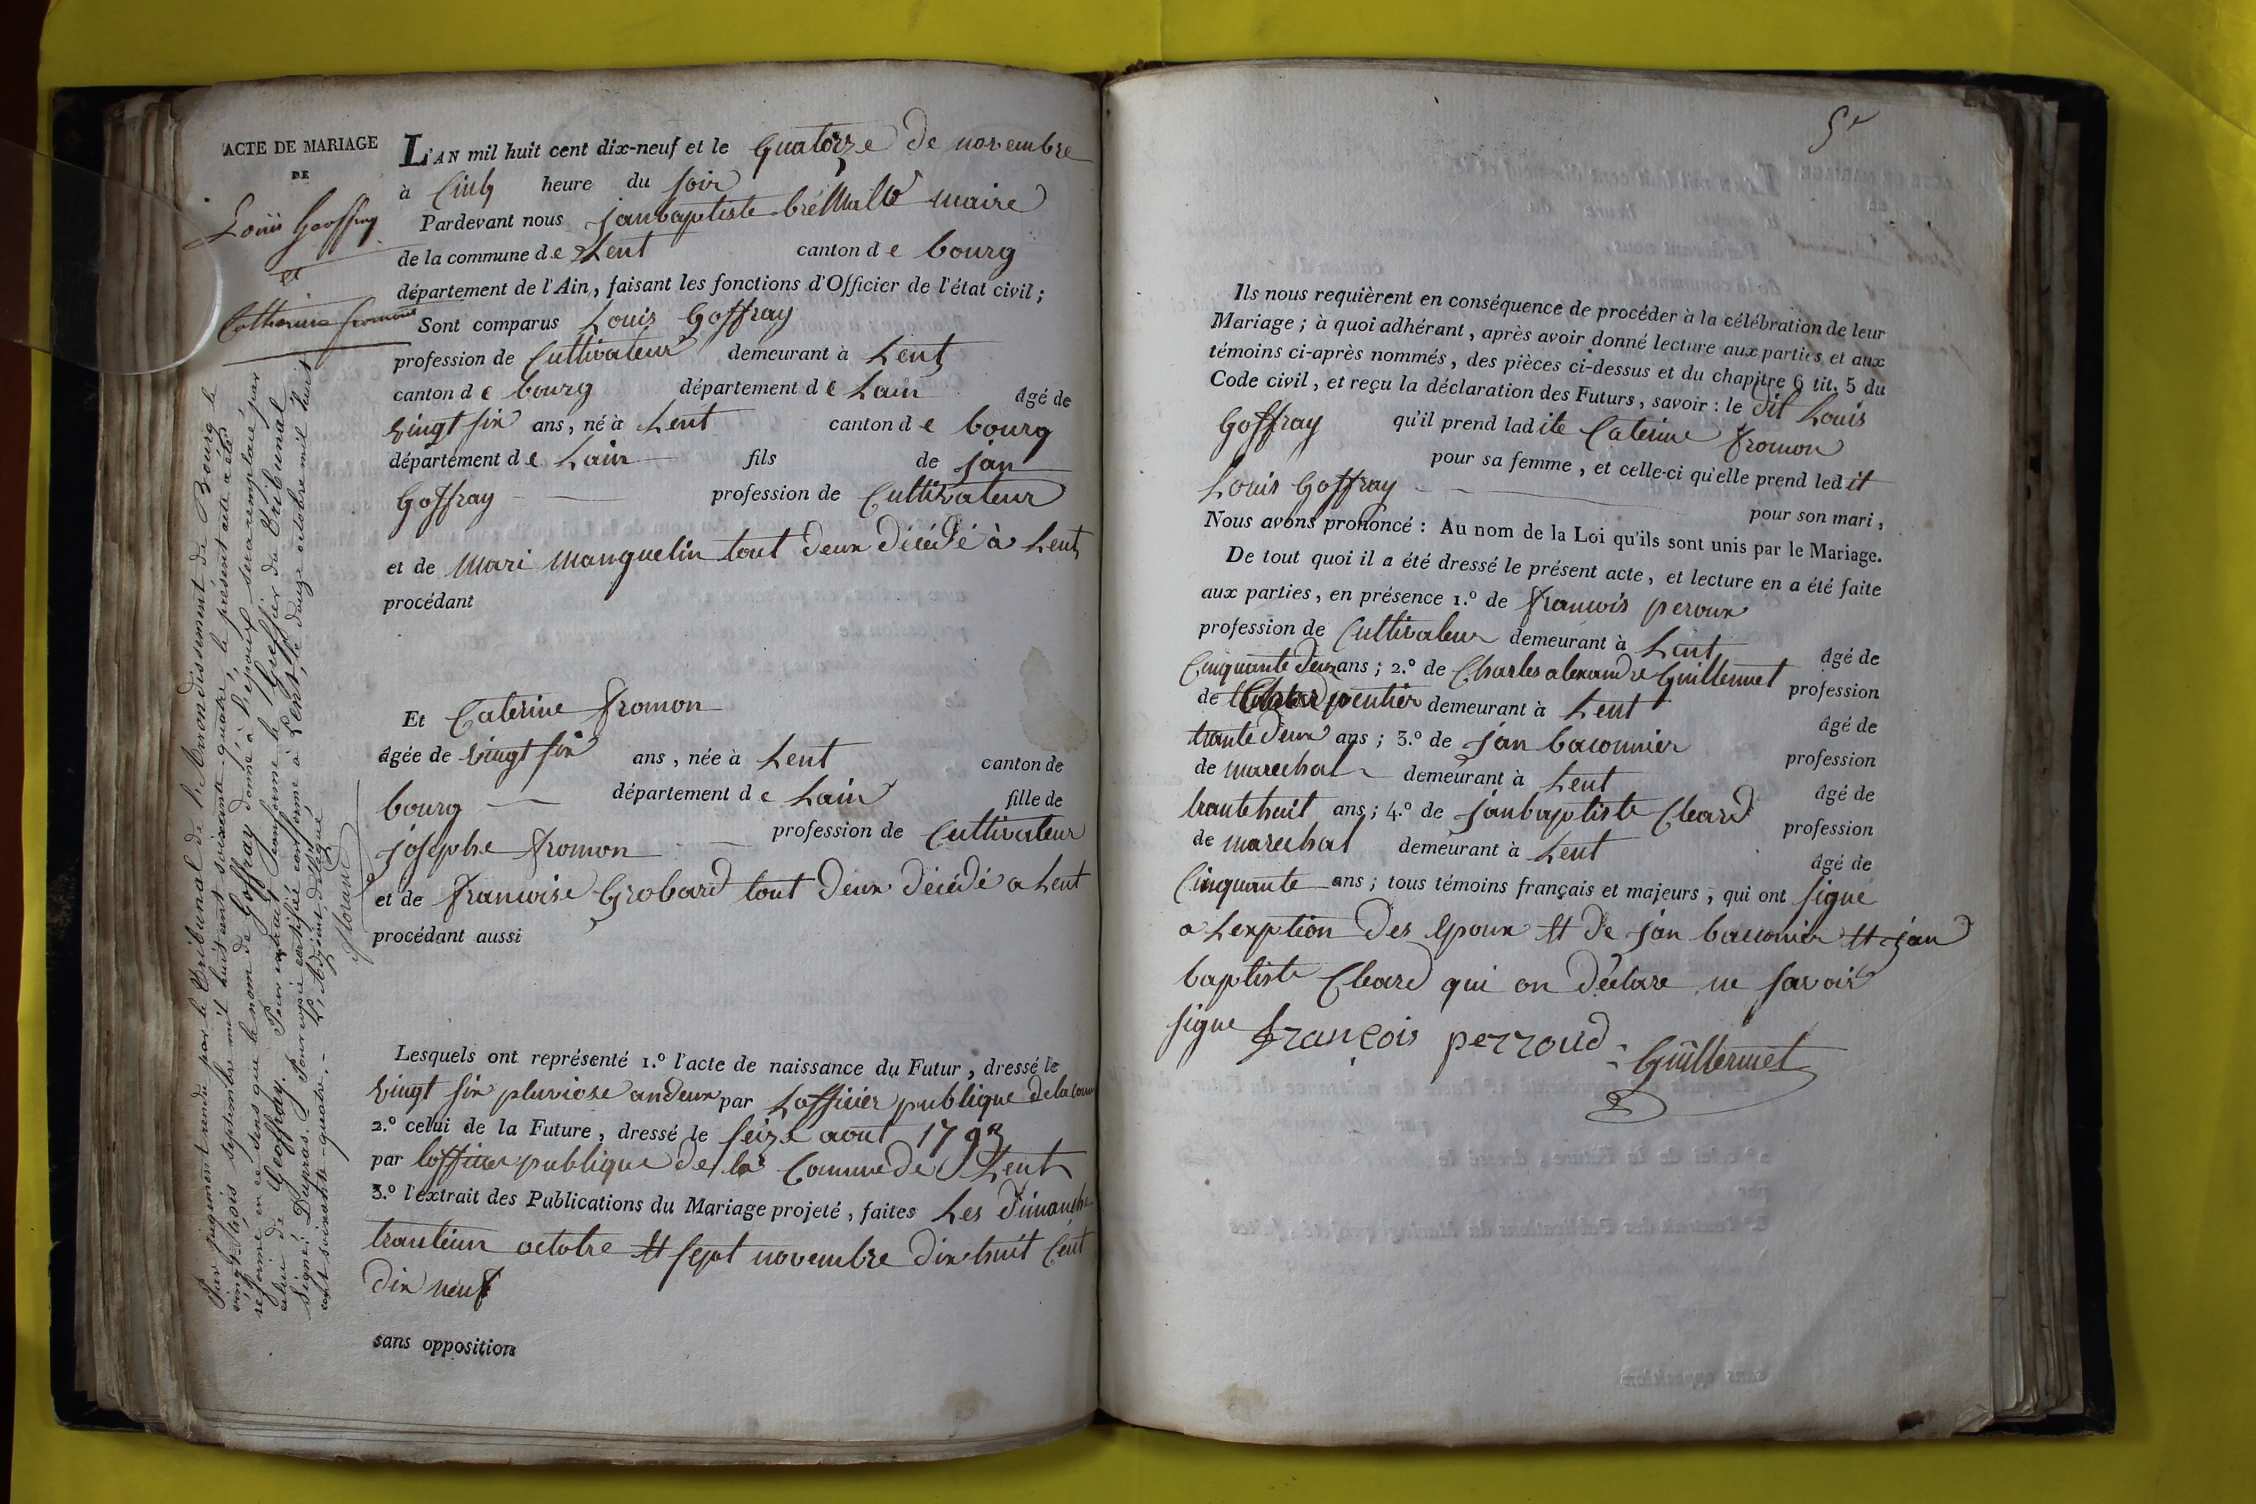 ACTE DE MARIAGE
DE
Louis Geoffray
et
Catherine fromont
Par jugement rendu par le Tribunal de l'Arrondissement de Bourg le
vingt trois septembre mil huit cent soixante quatre, le présent acte a été
réformé en ce sens que le nom de Goffray donné à l'époux sera remplacé par
celui de Geoffray. Pour extrait conforme le Greffier du Tribunal
Signé: Dupras. Pour copie certifiée conforme à Lent, le douze octobre mil huit
cent soixante-quatre.- L'Adjoint délégué
L'AN mil huit cent dix-neuf et le quatorze de novembre
à Cinq heure du soir
Pardevant nous janbaptiste maire
de la commune de Lent canton de bourg
département de l'Ain, faisant les fonctions d'Officier de l'état civil;
Sont comparus Louis Goffray
profession de Cultivateur demeurant à Lent
canton de bourg département de Lain âgé de
vingt six ans, né à Lent canton de bourg
département de Lain fils de jan
Goffray profession de Cultivateur
et de mari manguelin tout deux décédé à Lent
procédant
Et Caterine fromon
âgée de vingt six ans, née à Lent canton de
bourg département de Lain fille de
josephe fromon profession de Cultivateur
et de francoise Grobard tout deux décédé a Lent
procédant aussi
Lesquels ont représenté 1.º l'acte de naissance du Futur, dressé le
vingt six pluviose an deux par Lofficier publique de la com
2.º celui de la Future, dressé le seize aout
par lofficier publique de la Commude Lent
3.º l'extrait des Publications du Mariage projeté, faites Les dimanche
tranteun octobre et sept novembre dix huit Cent
dix neuf
sans opposition
Ils nous requièrent en conséquence de procéder à la célébration de leur
Mariage; à quoi adhérant, après avoir donné lecture aux parties et aux
témoins ci-après nommés, des pièces ci-dessus et du chapitre 6 tit. 5 du
Code civil, et reçu la déclaration des Futurs, savoir: le dit Louis
Goffray qu'il prend ladite Caterine fromon
pour sa femme, et celle-ci qu'elle prend ledit
Louis Goffray pour son mari,
Nous avons prononcé: Au nom de la Loi qu'ils sont unis par le Mariage.
De tout quoi il a été dressé le présent acte, et lecture en a été faite
aux parties, en présence 1.º de francois peroux
profession de Cultivateur demeurant à Lent âgé de
Cinquante deux ans; 2.º de Charles alexandre Guillermet profession
de Charpentier demeurant à Lent âgé de
trante deux ans; 3.º de jan baconnier profession
de marechal demeurant à Lent âgé de
trante huit ans; 4.º de janbaptiste Cleard profession
de marechal demeurant à Lent âgé de
Cinquante ans; tous témoins français et majeurs, qui ont signé
a Lexption des epoux et de jan baconnier et jan
baptiste Cleard qui on déclare ne savoir
signe françois perroud Guillermet